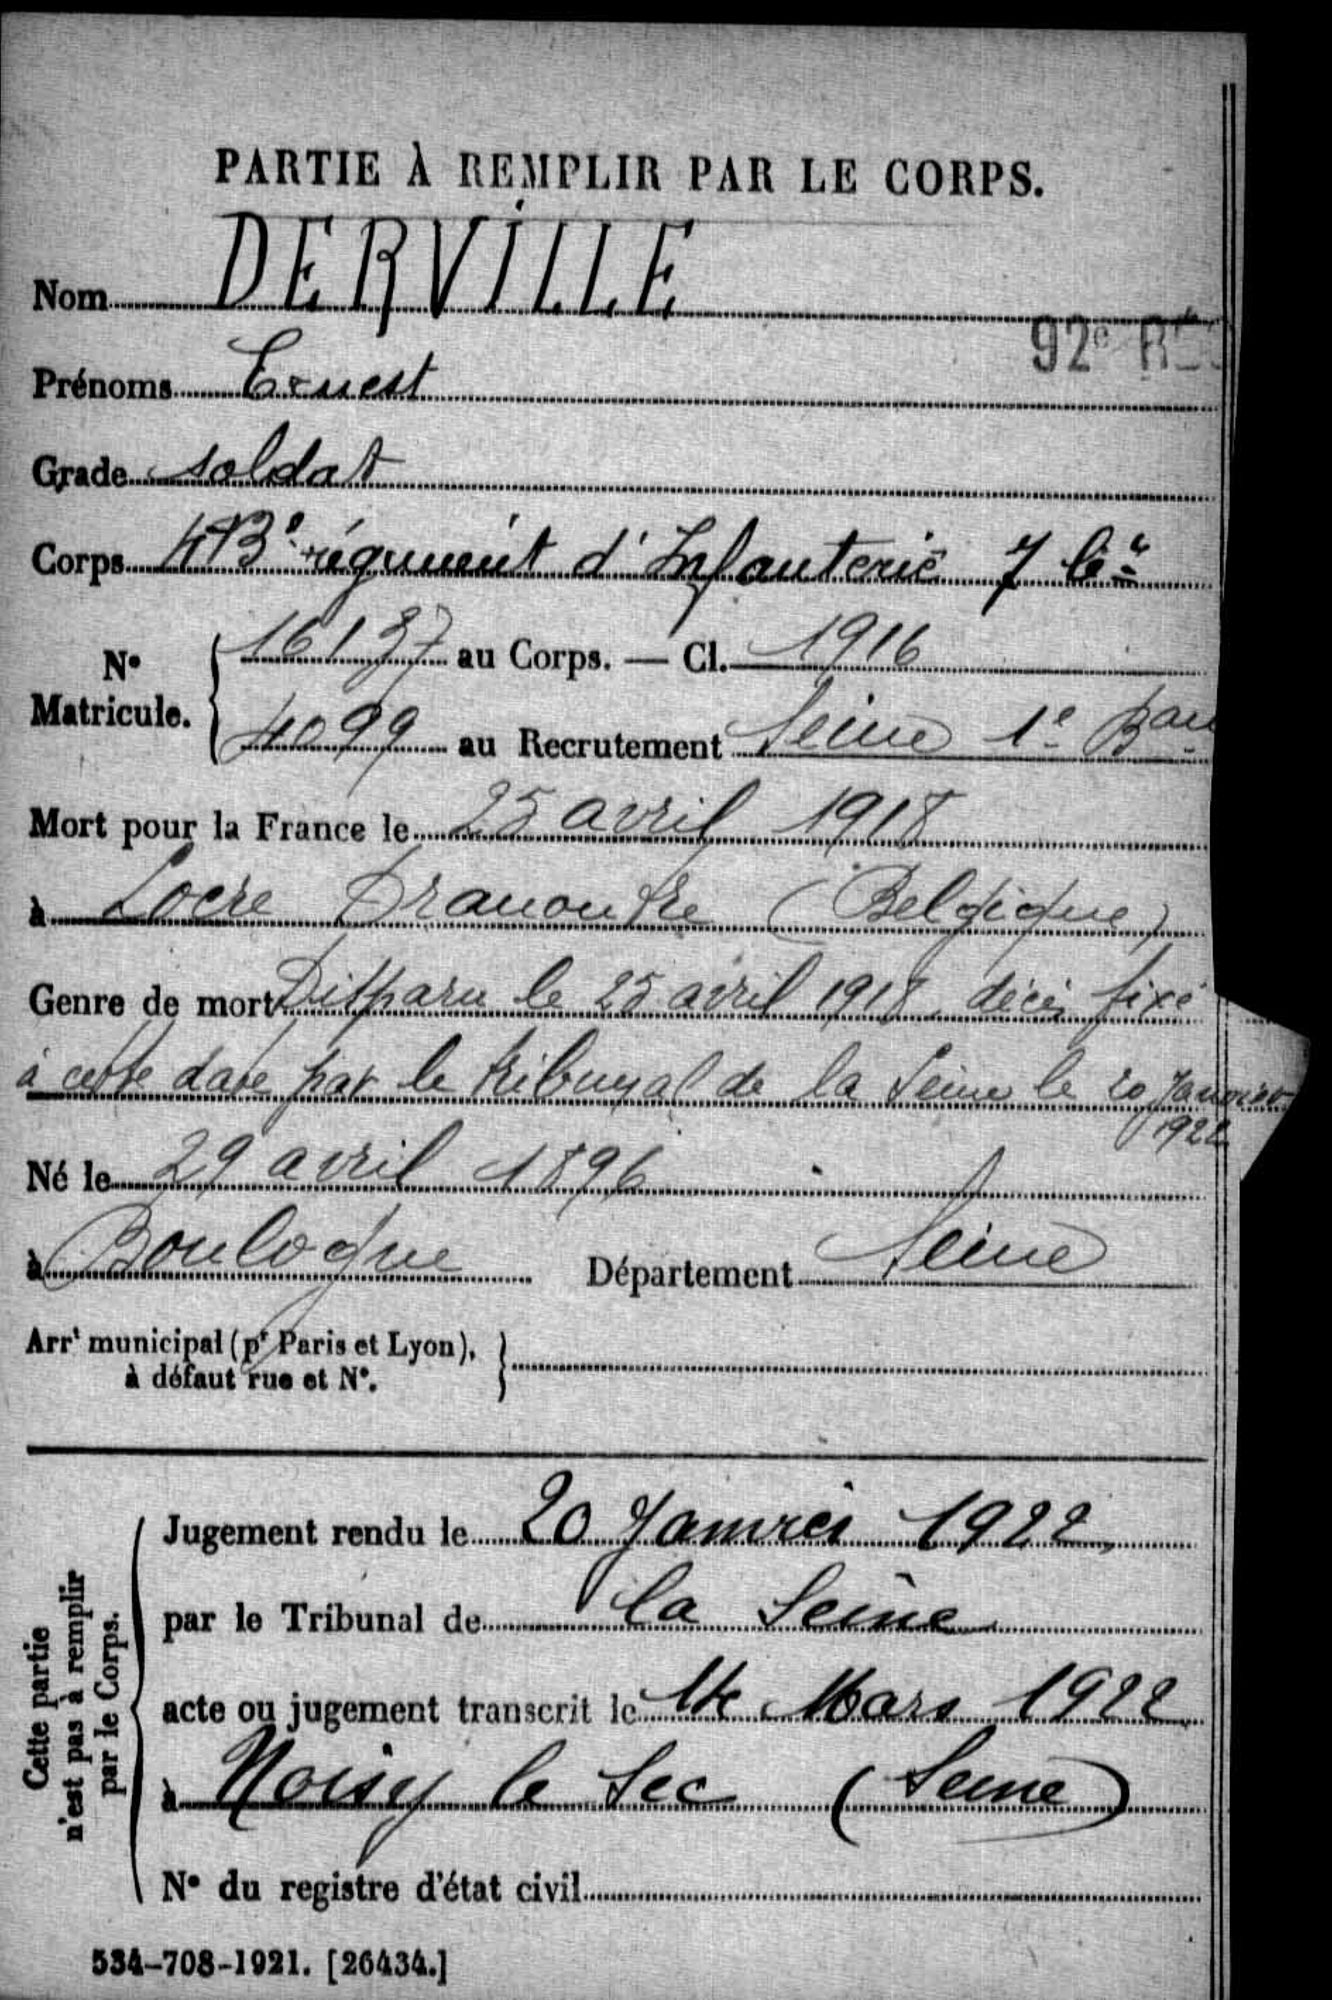 PARTIE À REMPLIR PAR LE CORPS.
Nom DERVILLE
92e
Prénoms Ernest
Grade soldat
Corps 413e régiment d'Infanterie 7 Cie
N° Matricule. 16137 au Corps. — Cl. 1916
4099 au Recrutement Seine 1e Bau
Mort pour la France le 25 avril 1918
à Locre Dranoutre (Belgique)
Genre de mort Disparu le 25 avril 1918, décès fixé
à cette date par le tribunal de la Seine le 20 Janvier
1922
Né le 29 avril 1896
à Boulogne Département Seine
Arrt municipal (pr Paris et Lyon),
à défaut rue et N°.
Cette partie
n'est pas à remplir
par le Corps.
Jugement rendu le 20 Janvier 1922
par le Tribunal de la Seine
acte ou jugement transcrit le 14 Mars 1922
à Noisy le Sec (Seine)
N° du registre d'état civil
534-708-1921. [26434.]